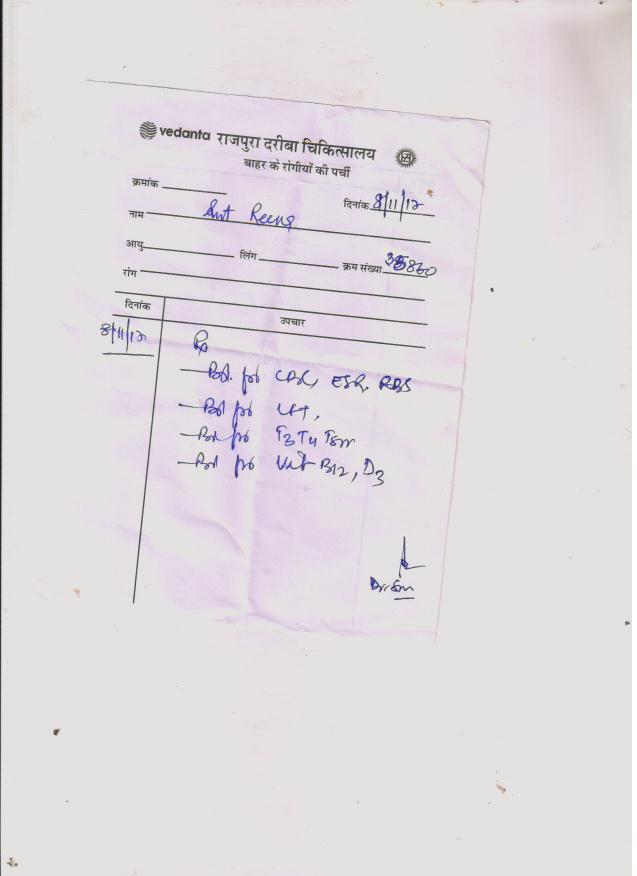 vedanta राजपुरा दरीबा चिकित्सालय
बाहर के रोगीयों की पर्ची
क्रमांक
दिनांक 8/11/12
नाम Smt Reena
आयु लिंग क्रम संख्या
रोग
दिनांक उपचार
8/11/12 Rx
- Bl. for CBC, ESR, RBS
- Bl for LFT,
- Bl for T3 T4 TSH
- Bl for Vit B12, D3